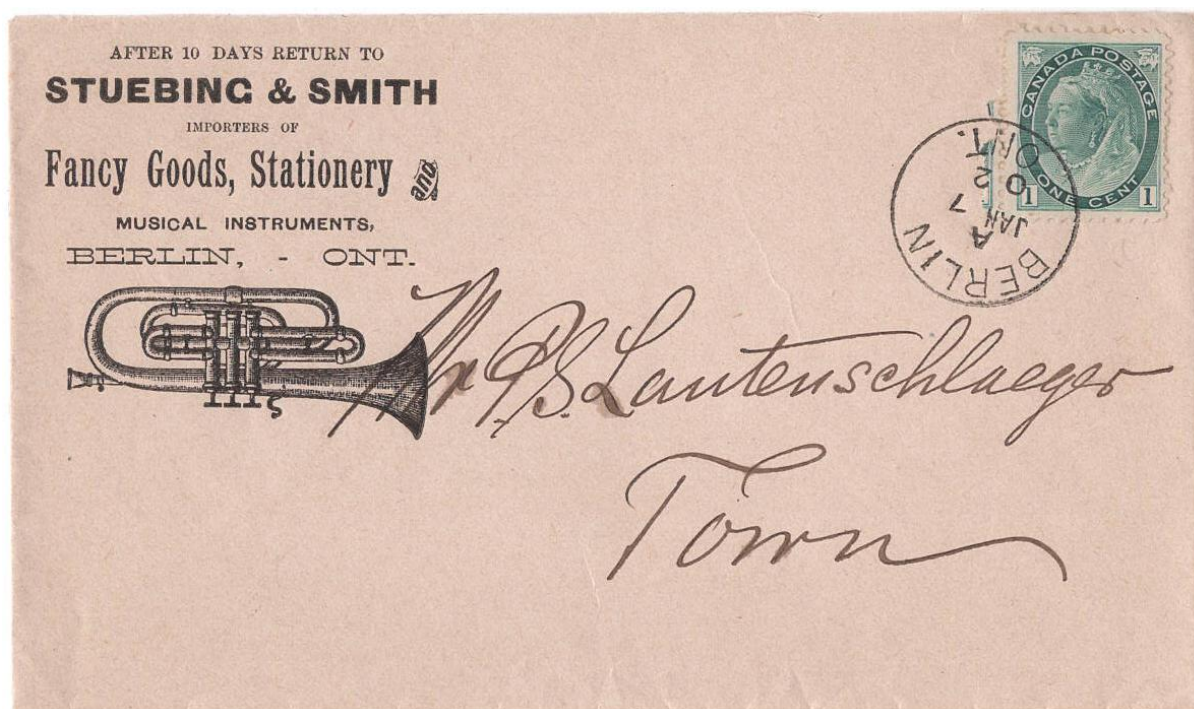 AFTER 10 DAYS RETURN TO
STUEBING & SMITH
IMPORTERS OF
Fancy Goods, Stationery and
MUSICAL INSTRUMENTS,
BERLIN, - ONT.
CANADA POSTAGE
ONE CENT
1 1
BERLIN
A
JAN 7
02
ONT.
Mr P.S. Lautenschlaeger
Town